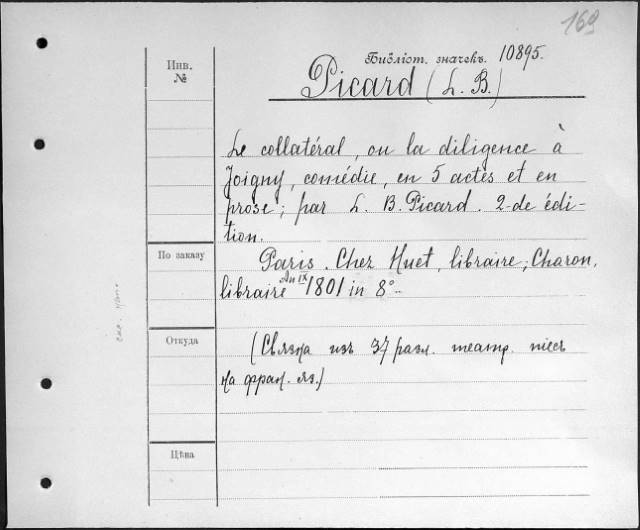 169
Инв.
№
Библіот. значекъ. 10895.
Picard (L. B.)
Le collatéral, ou la diligence à
Joigny, comédie, en 5 actes et en
prose; par L. B. Picard. 2-de édi-
tion.
По заказу
Paris. Chez Huet, libraire; Charon,
libraire An IX 1801 in 8°
Откуда
(Связка изъ 37 разл. театр. піесъ
на фран. яз.)
Цѣна